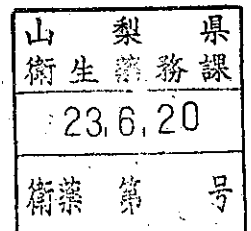 山梨県
衛生薬務課
23.6.20
衛薬第 号